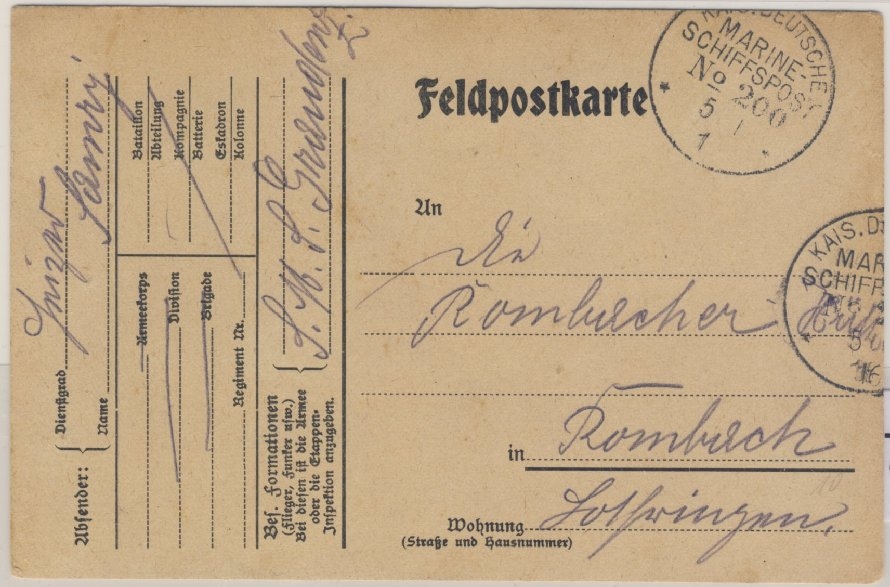 KAIS. DEUTSCHE
MARINE-
SCHIFFSPOST
No 200
5 1
1
Feldpostkarte
KAIS. D
MAR
SCHIFF
5
16
An
die
Rombacher
in Rombach
Wohnung Lothringen.
(Straße und Hausnummer)
Absender:
Dienstgrad
Name
Bataillon
Abteilung
Kompagnie
Batterie
Eskadron
Kolonne
Armeekorps
Division
Brigade
Regiment Nr.
Bes. Formationen
(Flieger, Funker usw.)
Bei diesen ist die Armee
oder die Etappen-
Inspektion anzugeben.
S. M. S. Graudenz